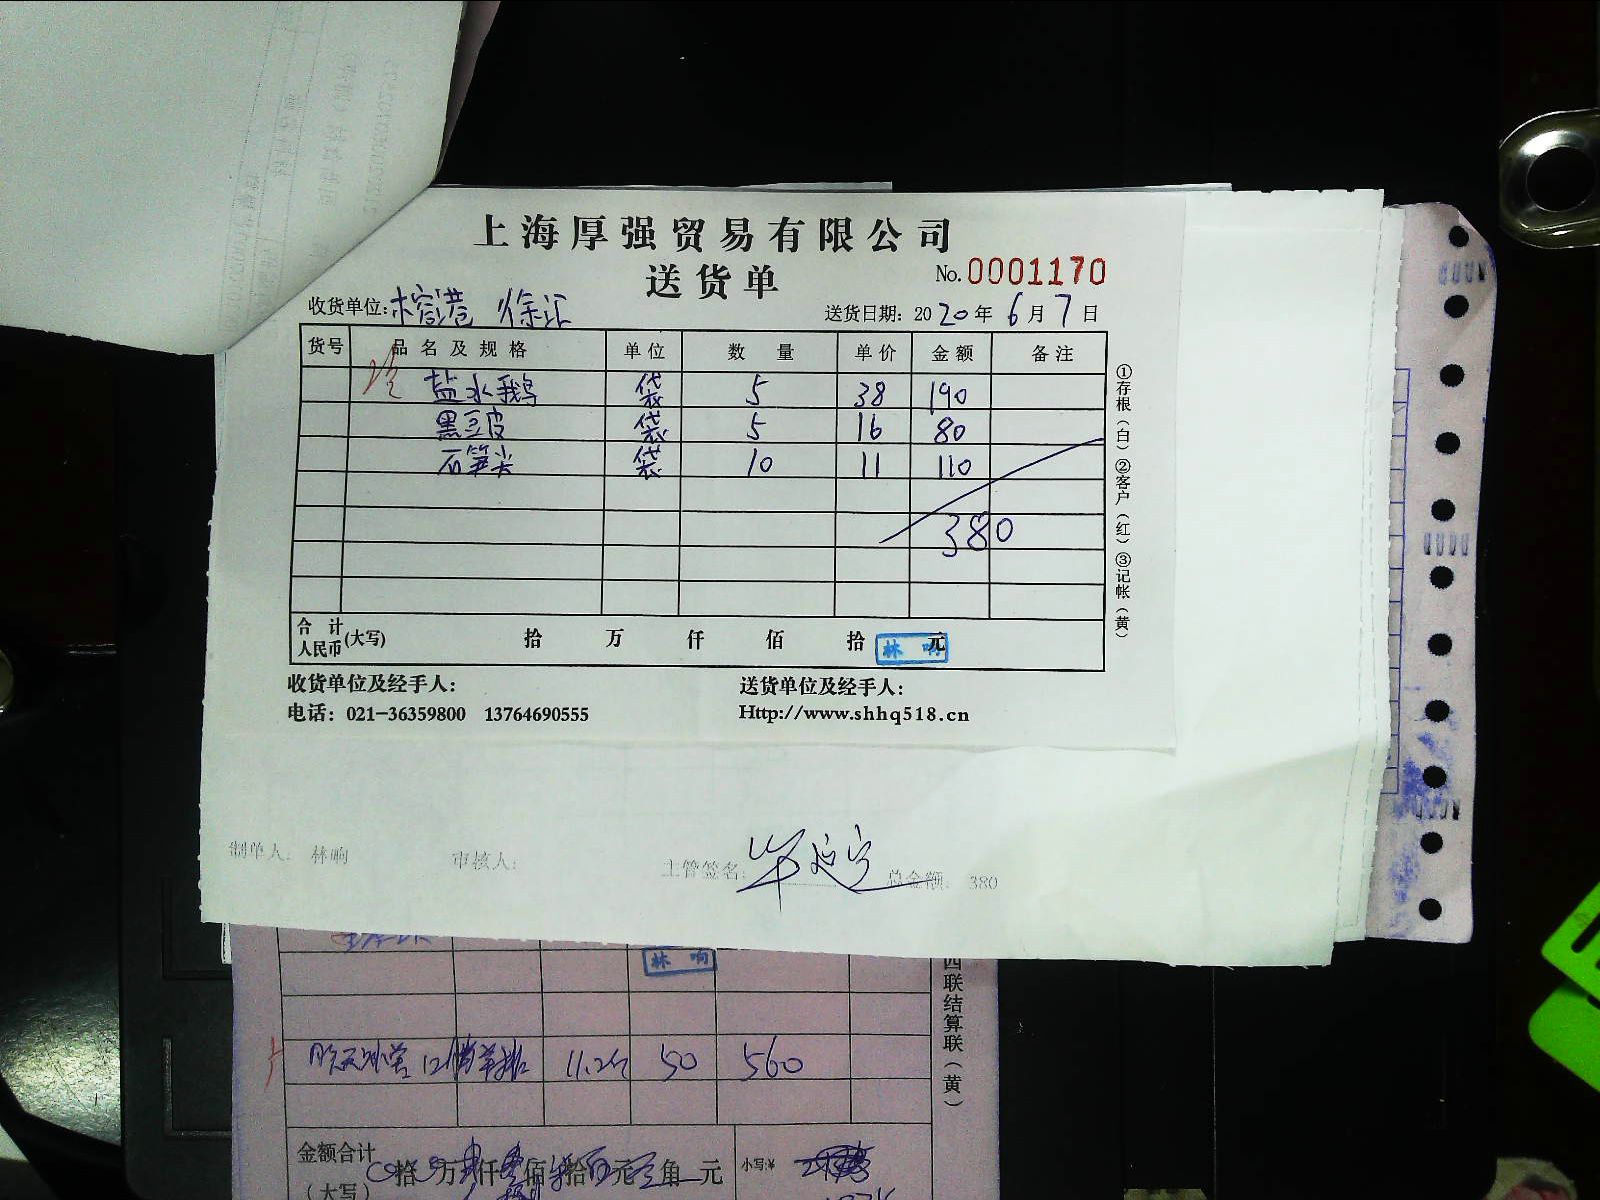 上海厚强贸易有限公司
送货单
No.0001170
收货单位: 榕港 徐汇
送货日期: 2020年6月7日
货号 品名及规格 单位 数量 单价 金额 备注
盐水鹅 袋 5 38 190
黑豆皮 袋 5 16 80
石笋尖 袋 10 11 110
380
合计人民币(大写) 拾 万 仟 佰 拾 元
林响
收货单位及经手人:
送货单位及经手人:
电话: 021-36359800 13764690555
Http://www.shhq518.cn
①存根(白)②客户(红)③记帐(黄)
制单人: 林响 审核人: 主管签名: 总金额: 380
林响
11.2斤 50 560
四联结算联(黄)
金额合计
(大写) 拾 万 仟 佰 拾 元 角 元
小写:¥